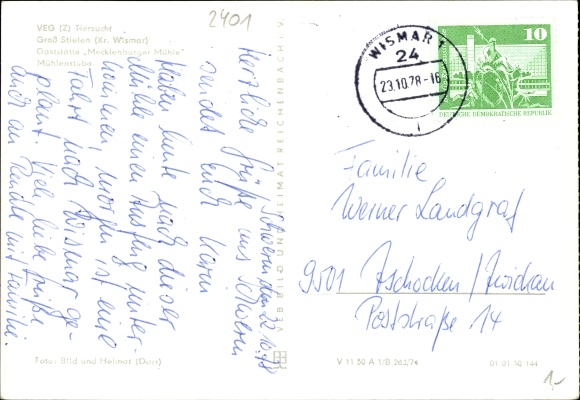 2401
VEG (Z) Tierzucht
Groß Stieten (Kr. Wismar)
Gaststätte „Mecklenburger Mühle"
Mühlenstube
Schwerin, den 22.10.78
Herzliche Grüße aus Schwerin
sendet Euch Karin
Haben heute nach dieser
Mühle einen Ausflug unter-
nommen, morgen ist eine
Fahrt nach Wismar ge-
plant. Viele liebe Grüße
auch an Renate mit Familie.
Foto: Bild und Heimat (Darr)
VEB BILD UND HEIMAT REICHENBACH i. V
WISMAR 1
24
23.10.78-16
10
DEUTSCHE DEMOKRATISCHE REPUBLIK
Familie
Werner Landgraf
9501 Zschocken/Zwickau
Poststraße 14
V 11 50 A 1/B 262/74
01 01 10 144
1,-